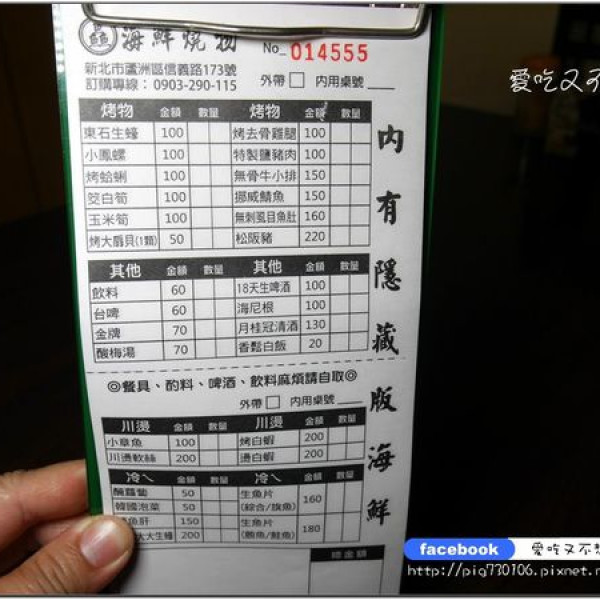 海鮮燒物 No_ 014555
新北市蘆洲區信義路173號
訂購專線：0903-290-115 外帶□ 內用桌號
愛吃又不
烤物 金額 數量 烤物 金額 數量
東石生蠔 100 烤去骨雞腿 100
小鳳螺 100 特製鹽豬肉 100
烤蛤蜊 100 無骨牛小排 150
筊白筍 100 挪威鯖魚 150
玉米筍 100 無刺虱目魚肚 160
烤大扇貝(1顆) 50 松阪豬 220
其他 金額 數量 其他 金額 數量
飲料 60 18天生啤酒 100
台啤 60 海尼根 100
金牌 70 月桂冠清酒 130
酸梅湯 70 香鬆白飯 20
內有隱藏版海鮮
◎餐具、酌料、啤酒、飲料麻煩請自取◎
外帶□ 內用桌號
川燙 金額 數量 川燙 金額 數量
小章魚 100 烤白蝦 200
川燙軟絲 200 燙白蝦 200
冷ㄟ 金額 數量 冷ㄟ 金額 數量
醃蘿蔔 50 生魚片(綜合/旗魚) 160
韓國泡菜 50
魚肝 150 生魚片(鮪魚/鮭魚) 180
大大生蠔 200
總金額
facebook 愛吃又不想
http://pig730106.pixnet.n